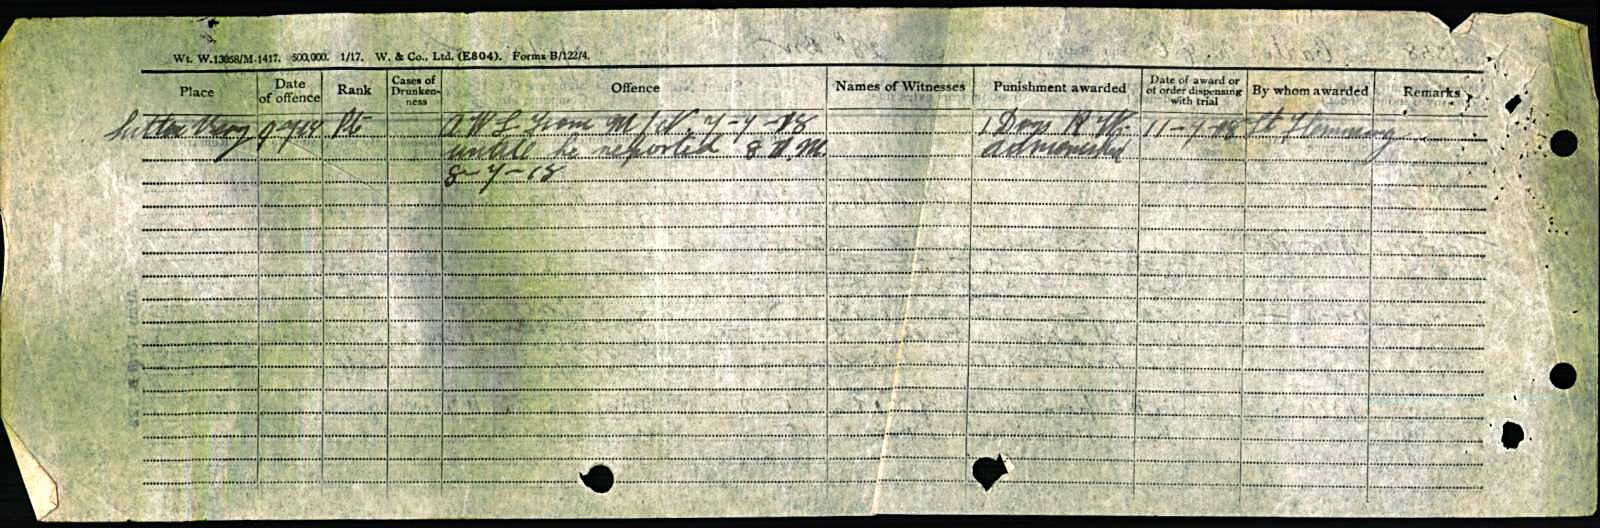 Wt. W.13058/M-1417. 500,000. 1/17. W. & Co., Ltd. (E804). Forms B/122/4.
Place Date of offence Rank Cases of Drunken-ness Offence Names of Witnesses Punishment awarded Date of award or of order dispensing with trial By whom awarded Remarks
Sutton Veny 9-7-18 Pte A W L from M/N. 7-7-18 1 Days R W. 11-7-18 Lt Flemming
untill he reported 8 P.M. admonished
8-7-18